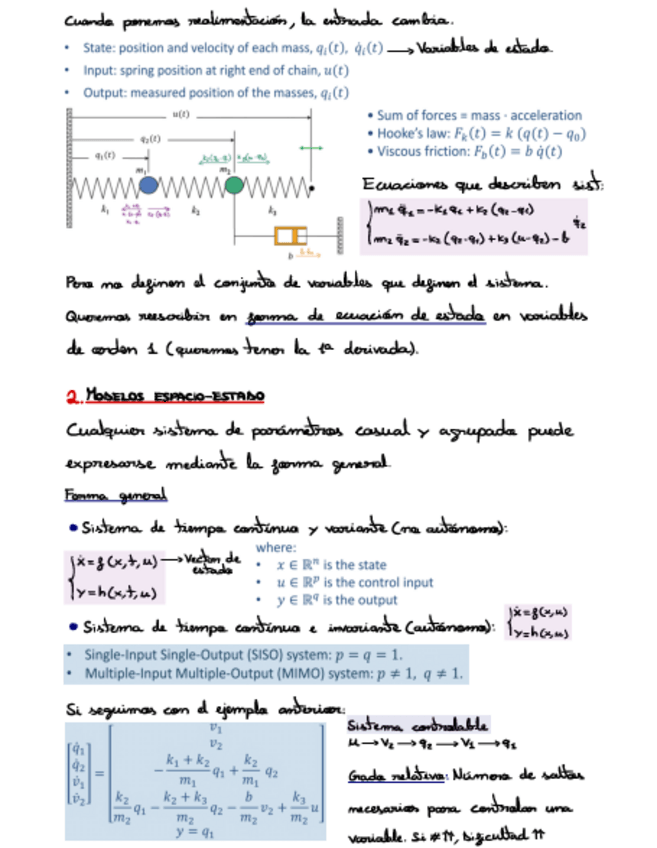 Cuando ponemos realimentación, la entrada cambia.
• State: position and velocity of each mass, qᵢ(t), q̇ᵢ(t) → Variables de estado
• Input: spring position at right end of chain, u(t)
• Output: measured position of the masses, qᵢ(t)
u(t)
q₂(t)
q₁(t)
m₁
m₂
k₁
k₂
k₃
b
• Sum of forces = mass · acceleration
• Hooke's law: Fₖ(t) = k (q(t) − q₀)
• Viscous friction: F_b(t) = b q̇(t)
Ecuaciones que describen sist:
m₁ q̈₁ = -k₁q₁ + k₂ (q₂-q₁)
m₂ q̈₂ = -k₂ (q₂-q₁) + k₃ (u-q₂) - b q̇₂
Pero no definen el conjunto de variables que definen el sistema.
Queremos reescribir en forma de ecuación de estado en variables
de orden 1 (queremos tener la 1ª derivada).
2. MODELOS ESPACIO-ESTADO
Cualquier sistema de parámetros casual y agrupada puede
expresarse mediante la forma general
Forma general
• Sistema de tiempo continuo y variante (no autónomo):
ẋ = f(x,t,u) → Vector de estado
y = h(x,t,u)
where:
• x ∈ ℝⁿ is the state
• u ∈ ℝᵖ is the control input
• y ∈ ℝ^q is the output
• Sistema de tiempo continuo e invariante (autónomo):
ẋ = f(x,u)
y = h(x,u)
• Single-Input Single-Output (SISO) system: p = q = 1.
• Multiple-Input Multiple-Output (MIMO) system: p ≠ 1, q ≠ 1.
Si seguimos con el ejemplo anterior:
[q̇₁ q̇₂ v̇₁ v̇₂] =
v₁
v₂
− (k₁ + k₂)/m₁ q₁ + k₂/m₁ q₂
k₂/m₂ q₁ − (k₂ + k₃)/m₂ q₂ − b/m₂ v₂ + k₃/m₂ u
y = q₁
Sistema controlable
u → v₂ → q₂ → v₁ → q₁
Grado relativo: Número de saltos
necesarios para controlar una
variable. Si # ↑↑, dificultad ↑↑